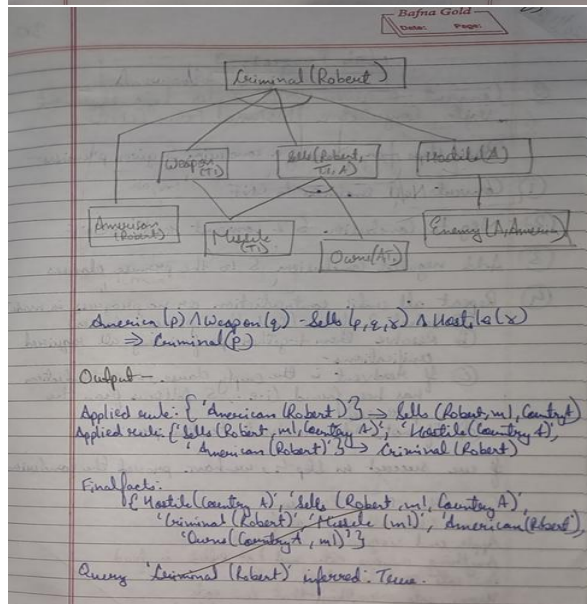 Bafna Gold
Date: Page:
Criminal (Robert)
Weapon (T1)
Sells (Robert, T1, A)
Hostile (A)
American (Robert)
Missile (T1)
Owns (A T1)
Enemy (A, America)
America (p) ∧ Weapon (q) - Sells (p, q, r) ∧ Hostile (r)
⇒ Criminal (p)
Output -
Applied rule: {'American (Robert)'} → Sells (Robert, m1, Country A)
Applied rule: {'Sells (Robert, m1, Country A)', 'Hostile (Country A)',
'American (Robert)'} → Criminal (Robert)
Final facts:
{ Hostile (Country A)', 'Sells (Robert, m1, Country A)',
'Criminal (Robert)' 'Missile (m1)', 'American (Robert)',
'Owns (Country A, m1)'}
Query 'Criminal (Robert)' inferred: True.